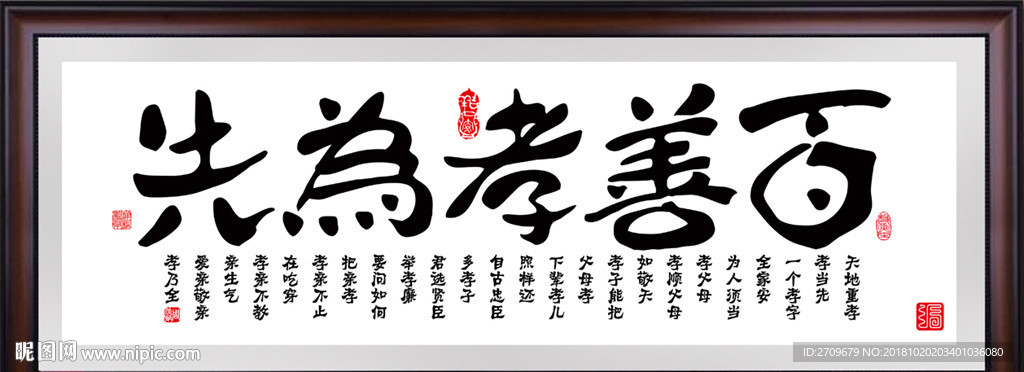 百善孝為先
天地重孝
孝当先
一个孝字
全家安
为人须当
孝父母
孝顺父母
如敬天
孝子能把
父母孝
下辈孝儿
照样还
自古忠臣
多孝子
君选贤臣
举孝廉
要问如何
把亲孝
孝亲不止
在吃穿
孝亲不教
亲生气
爱亲敬亲
孝乃全
昵图网 www.nipic.com
ID:2709679 NO:20181020203401036080